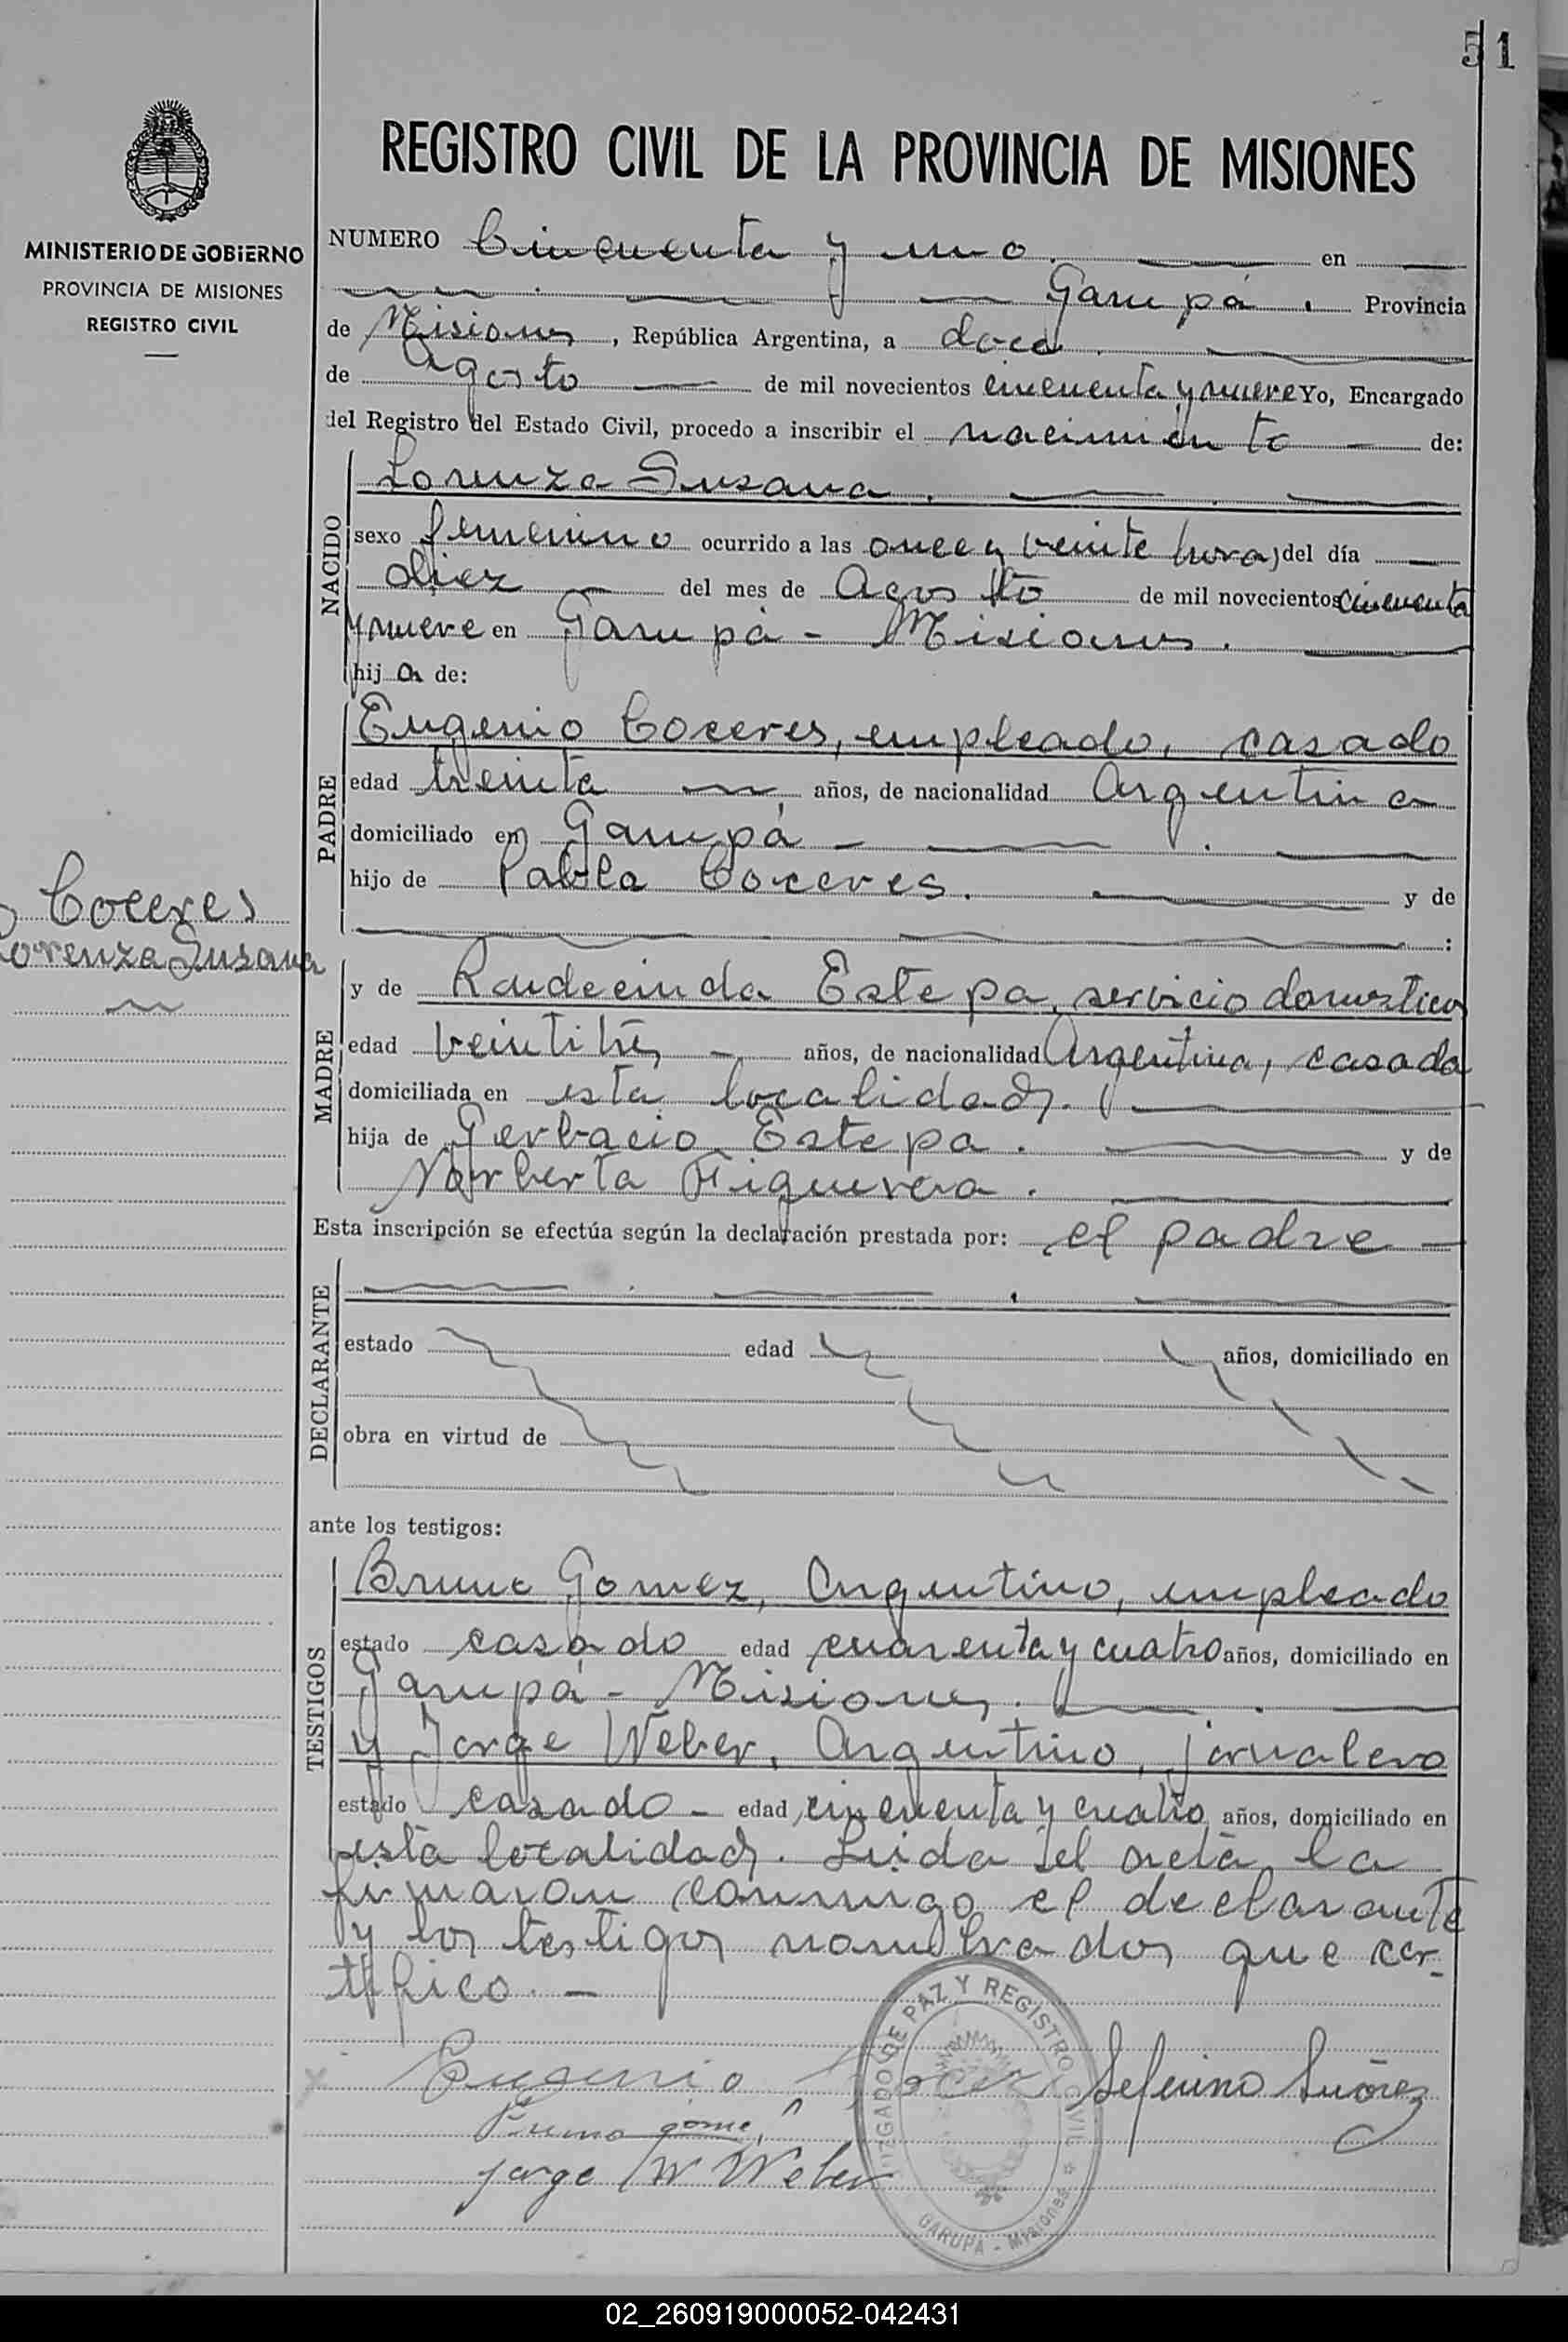 51
REGISTRO CIVIL DE LA PROVINCIA DE MISIONES
MINISTERIO DE GOBIERNO
PROVINCIA DE MISIONES
REGISTRO CIVIL
NUMERO Cincuenta y uno. en
Garupá. Provincia
de Misiones, República Argentina, a doce.
de Agosto de mil novecientos cincuenta y nueve Yo, Encargado
del Registro del Estado Civil, procedo a inscribir el nacimiento de:
NACIDO
Lorenza Susana.
sexo femenino ocurrido a las once y veinte horas del día
diez del mes de Agosto de mil novecientos cincuenta
y nueve en Garupá - Misiones.
hija de:
PADRE
Eugenio Coceres, empleado, casado
edad treinta años, de nacionalidad Argentina
domiciliado en Garupá -
hijo de Pabla Coceres. y de
Coceres
Lorenza Susana
MADRE
y de Raudecinda Estepa, servicio domestico
edad veintitrés - años, de nacionalidad Argentina, casada
domiciliada en esta localidad.
hija de Gerbacio Estepa. y de
Norberta Figuerera.
Esta inscripción se efectúa según la declaración prestada por: el padre
DECLARANTE
estado edad años, domiciliado en
obra en virtud de
ante los testigos:
TESTIGOS
Bruno Gomez, Argentino, empleado
estado casado edad cuarenta y cuatro años, domiciliado en
Garupá - Misiones.
y Jorge Weber, Argentino, jornalero
estado casado - edad cincuenta y cuatro años, domiciliado en
esta localidad. Leida el acta, la
firmaron conmigo el declarante
y los testigos nombrados que cer-
tifico. -
DE PAZ Y REGISTRO CIVIL
GARUPA - Misiones
Eugenio Seferino Suárez
Bruno gome
Jorge W Weber
02_260919000052-042431